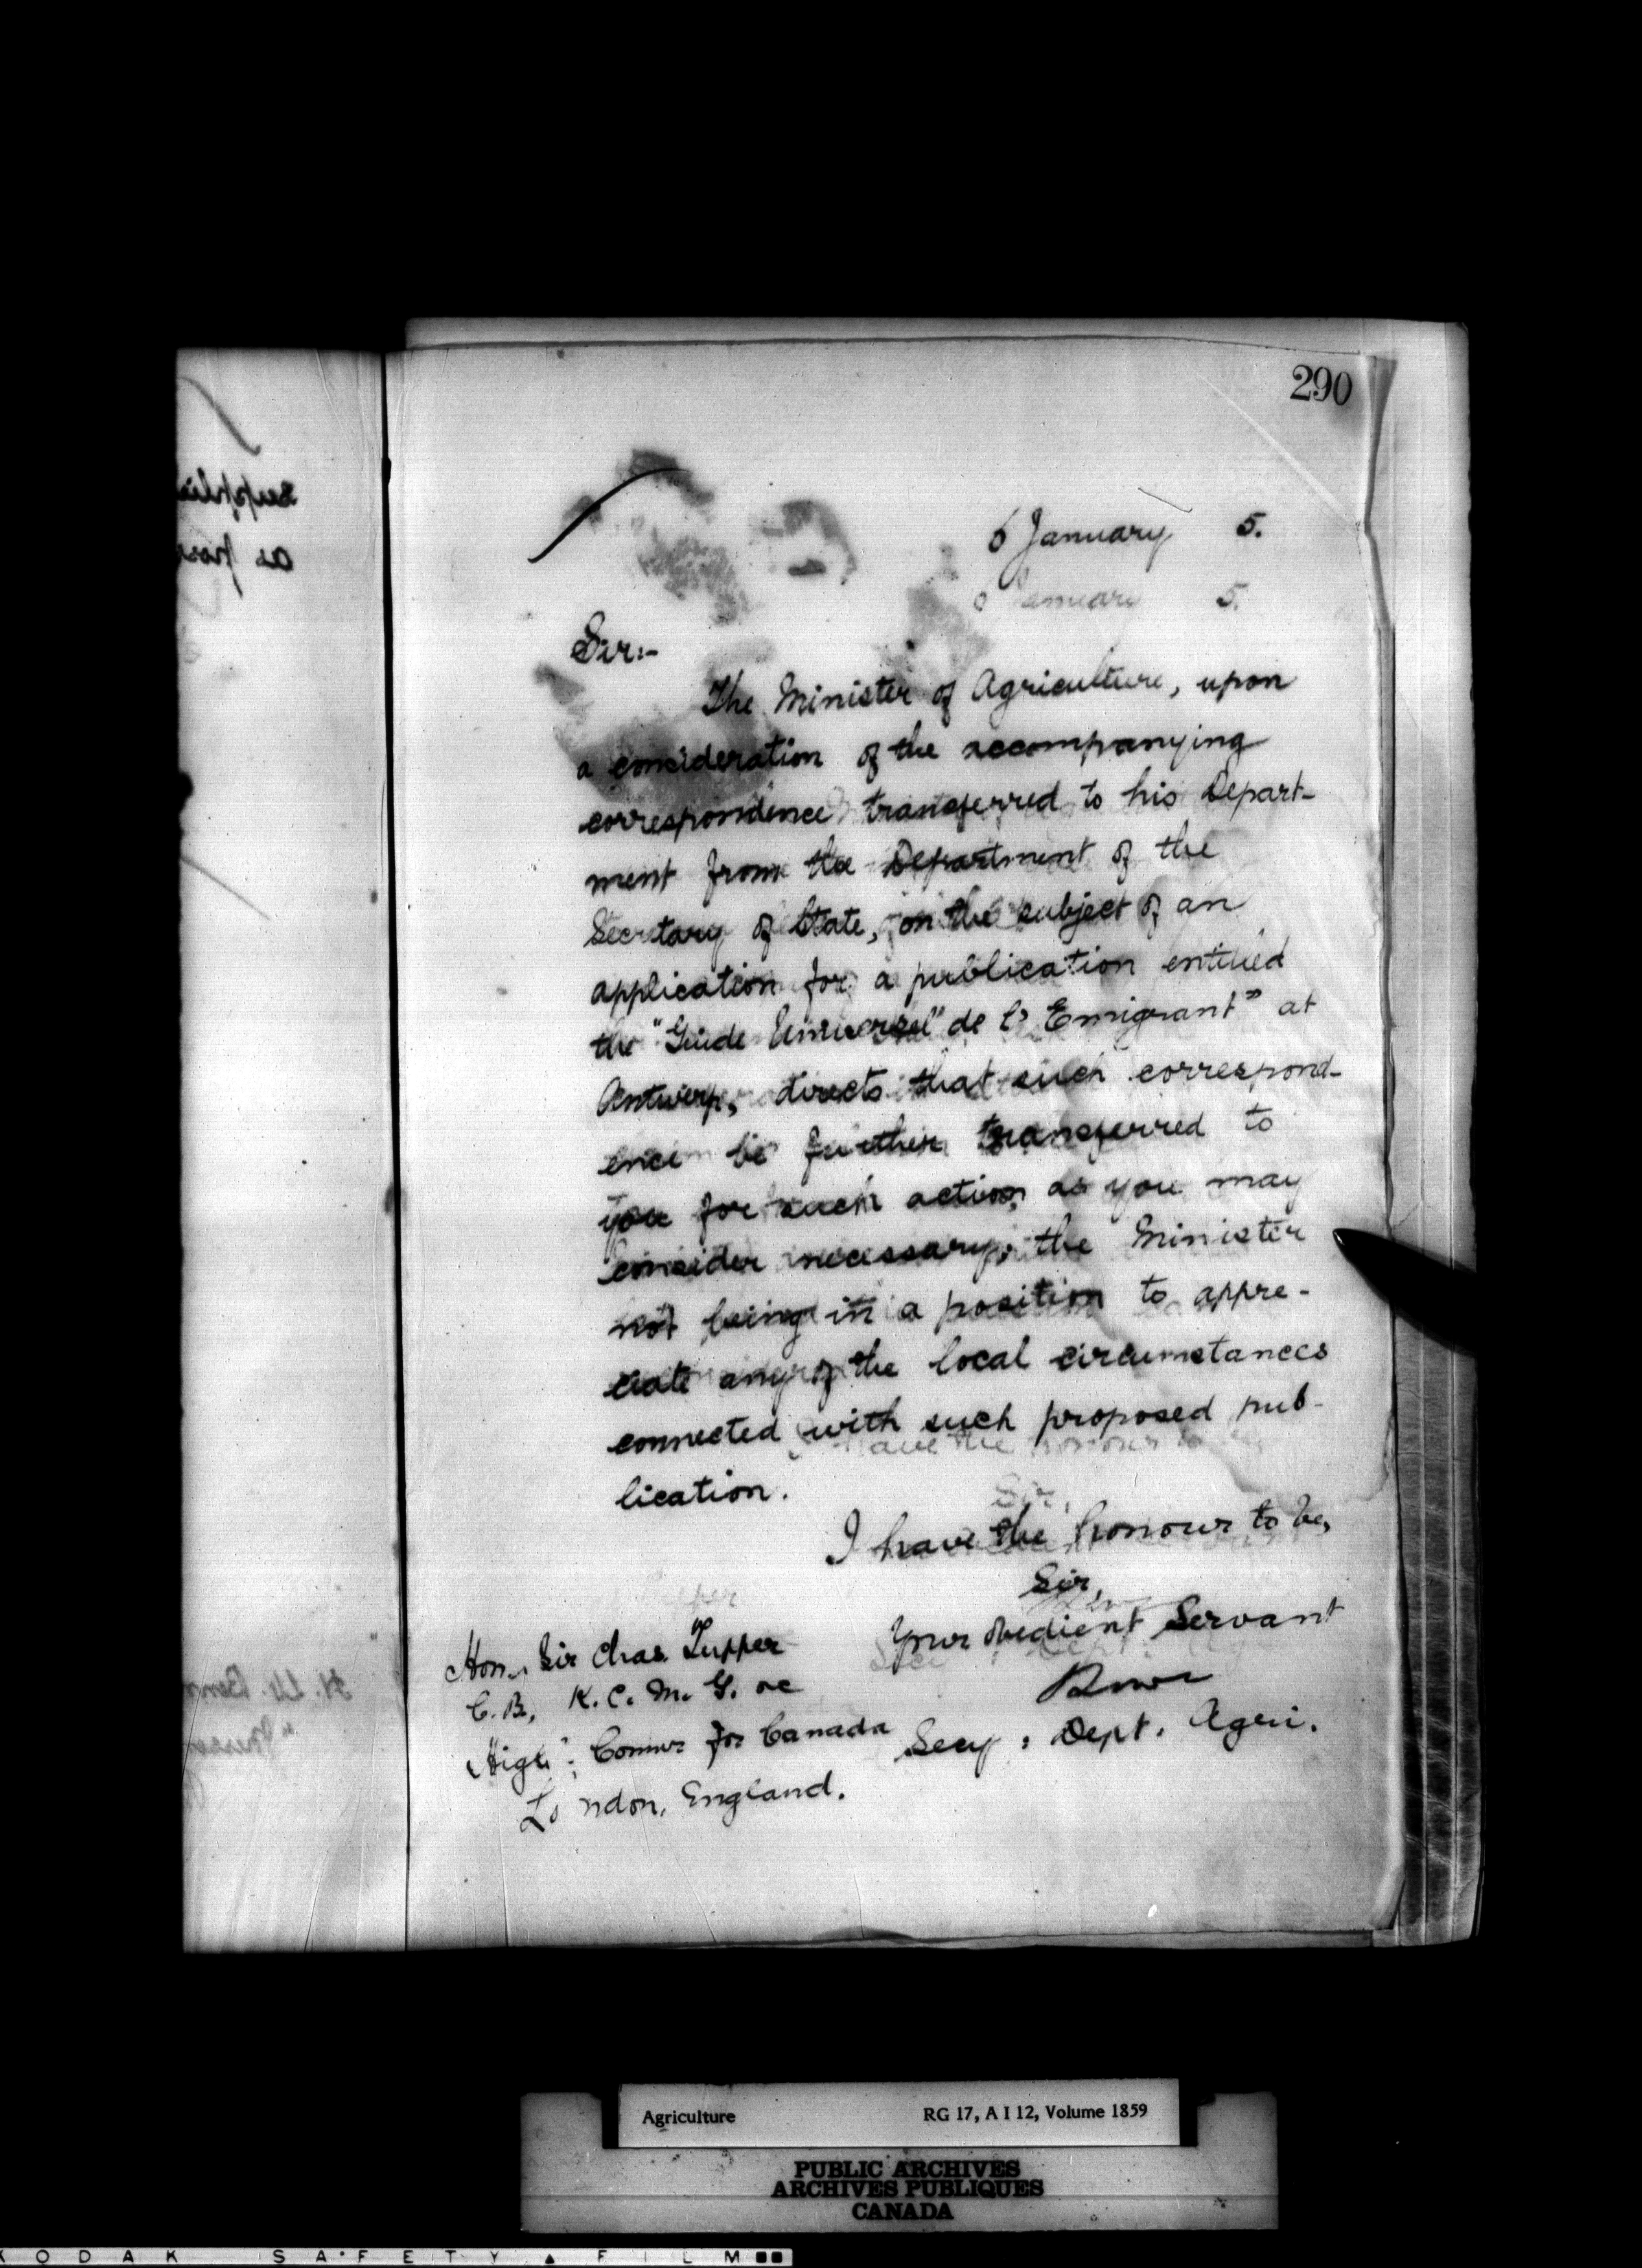 290
6 January 5.
Sir:-
The Minister of Agriculture, upon
a consideration of the accompanying
correspondence transferred to his Depart-
ment from the Department of the
Secretary of State, on the subject of an
application for a publication entitled
the "Guide Universel" de l'Emigrant" at
Antwerp, directs that such correspond-
ence be further transferred to
you for such action, as you may
consider necessary, the Minister
not being in a position to appre-
ciate any of the local circumstances
connected with such proposed pub-
lication.
I have the honour to be,
Sir,
Your obedient Servant
Secy: Dept. Agri.
Hon. Sir Chas. Tupper
C.B, K.C.M.G. &c
High Commr for Canada
London, England.
Agriculture RG 17, A I 12, Volume 1859
PUBLIC ARCHIVES
ARCHIVES PUBLIQUES
CANADA
KODAK SAFETY FILM